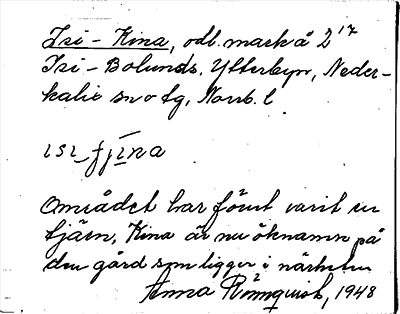 Isi - Kina, odl. mack å 2 17
Isi - Bolunds, Ytterbyn, Neder-
kalix sn o tg, Norrb. l
ısı fjı̱na
Området har förut varit en
tjärn, Kina är nu öknamn på
den gård som ligger i närheten
Anna Rönnquist, 1948